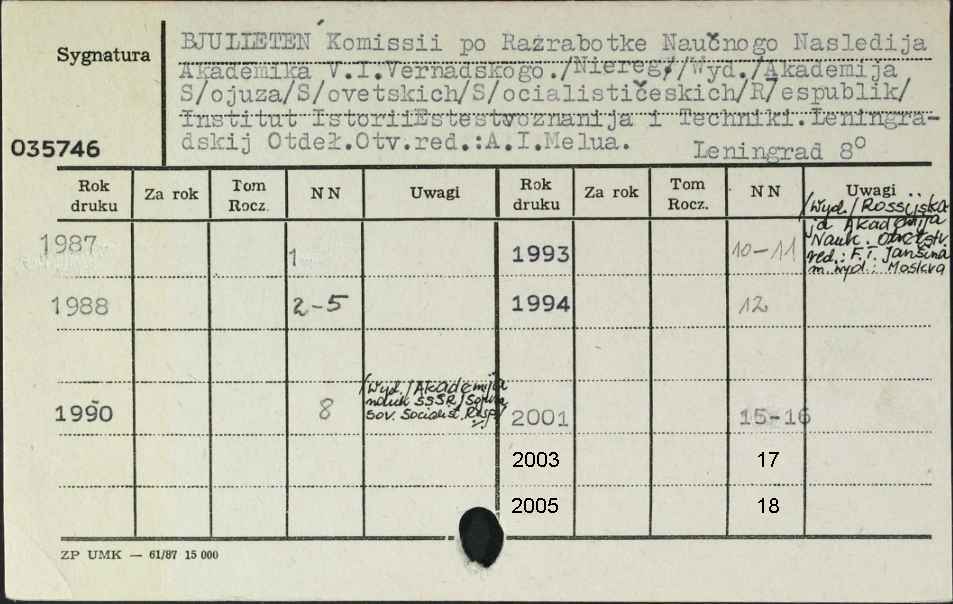 Sygnatura
035746
BJULLETEŃ Komissii po Razrabotke Naučnogo Nasledija
Akademika V.I.Vernadskogo./Niereg//Wyd./Akademija
S/ojuza/S/ovetskich/S/ocialističeskich/R/espublik/
Institut IstoriiEstestvoznanija i Techniki.Leningra-
dskij Otdeł.Otv.red.:A.I.Melua.
Leningrad 8°
Rok druku Za rok Tom Rocz. N N Uwagi Rok druku Za rok Tom Rocz. N N Uwagi
/Wyd./ Rossijska-
ja Akademija
Nauk. Otvetstv.
red.: F.T. Janšina
m. wyd.: Moskva
1987 1 1993 10-11
1988 2-5 1994 12
/Wyd./Akademija
nauk SSSR/Sojuza
Sov. Socialist. Resp/
1990 8 2001 15-16
2003 17
2005 18
ZP UMK — 61/87 15 000